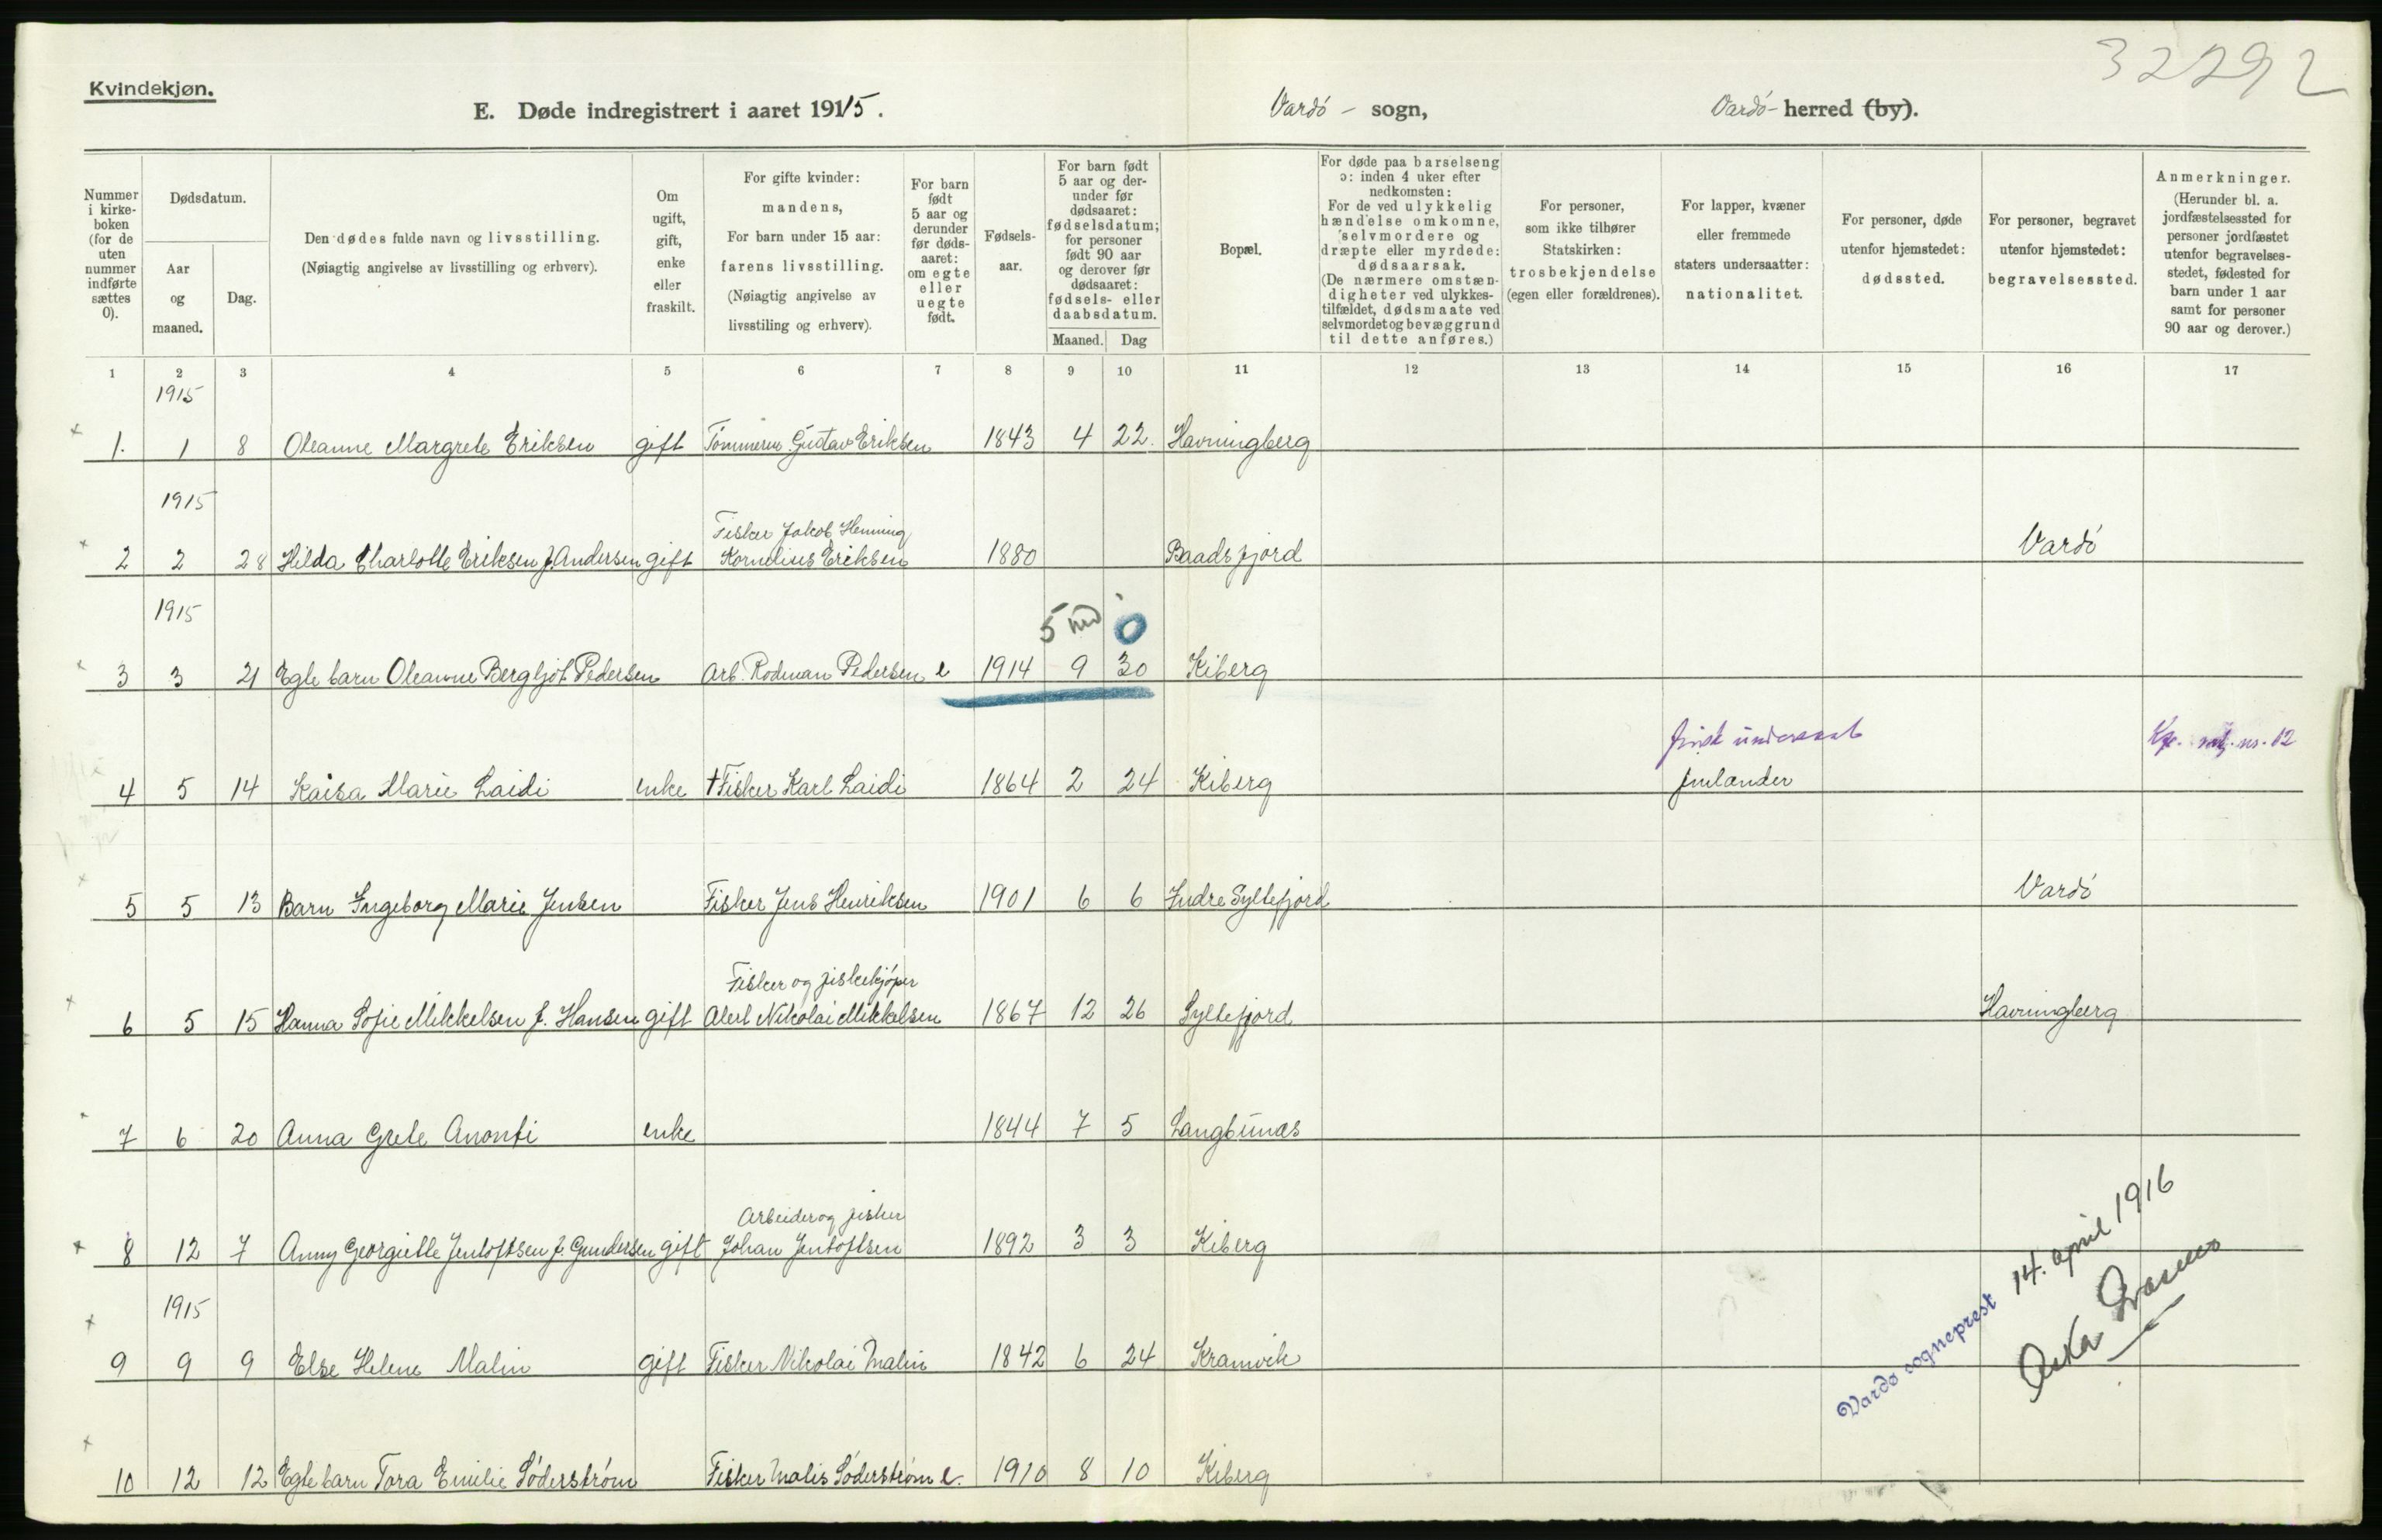 32292
Kvindekjøn.
E. Døde indregistrert i aaret 1915.
Vardó - sogn,
Vardó - herred (by).
Nummer i kirke-boken (for de uten nummer indførte sættes 0).
Dødsdatum.
Aar og maaned.
Dag.
Den dødes fulde navn og livsstilling.
(Nøiagtig angivelse av livsstilling og erhverv).
Om ugift, gift, enke eller fraskilt.
For gifte kvinder: mandens,
For barn under 15 aar: farens livsstilling.
(Nøiagtig angivelse av livsstiling og erhverv).
For barn født 5 aar og derunder før døds-aaret: om egte eller uegte født.
Fødsels-aar.
For barn født 5 aar og der-under før dødsaaret: fødselsdatum; for personer født 90 aar og derover før dødsaaret: fødsels- eller daabsdatum.
Maaned.
Dag
Bopæl.
For døde paa barselseng ɔ: inden 4 uker efter nedkomsten:
For de ved ulykkelig hændelse omkomne, selvmordere og dræpte eller myrdede: dødsaarsak.
(De nærmere omstæn-digheter ved ulykkes-tilfældet, dødsmaate ved selvmordet og bevæggrund til dette anføres.)
For personer, som ikke tilhører Statskirken: trosbekjendelse (egen eller forældrenes).
For lapper, kvæner eller fremmede staters undersaatter: nationalitet.
For personer, døde utenfor hjemstedet: dødssted.
For personer, begravet utenfor hjemstedet: begravelsessted.
Anmerkninger.
(Herunder bl. a. jordfæstelsessted for personer jordfæstet utenfor begravelses-stedet, fødested for barn under 1 aar samt for personer 90 aar og derover.)
1 2 3 4 5 6 7 8 9 10 11 12 13 14 15 16 17
1915
1. 1 8 Oleanne Margrete Eriksen gift Tømmerm Gustav Eriksen 1843 4 22. Havningberg
1915
Fisker Jakob Henning
2 2 28 Hilda Charlotte Eriksen f. Andersen gift Kornelius Eriksen 1880 Baadsfjord Vardó
1915
5 md 0
3 3 21 Egte barn Oleanne Bergljot Pedersen Arb. Rodman Pedersen e 1914 9 30 Kiberg
finsk undersaat Kp. nr. 12
4 5 14 Kaisa Marie Laidi enke †Fisker Karl Laidi 1864 2 24 Kiberg finlænder
5 5 13 Barn Ingeborg Marie Jensen Fisker Jens Henriksen 1901 6 6 Indre Syltefjord Vardó
Fisker og fiskekjóper
6 5 15 Hanna Sofie Mikkelsen f. Hansen gift Alert Nikolai Mikkelsen 1867 12 26 Syltefjord Havningberg
7 6 20 Anna Grete Anonti enke 1844 7 5 Langbunæs
Arbeider og fisker
8 12 7 Anny Georgiette Jentoftsen f. Gundersen gift Johan Jentoftsen 1892 3 3 Kiberg
1915
9 9 9 Else Helene Malin gift Fisker Nikolai Malin 1842 6 24 Kramvik
10 12 12 Egte barn Tora Emilie Sóderstróm Fisker Malis Sóderstróm e. 1910 8 10 Kiberg
Vardø sogneprest 14. april 1916